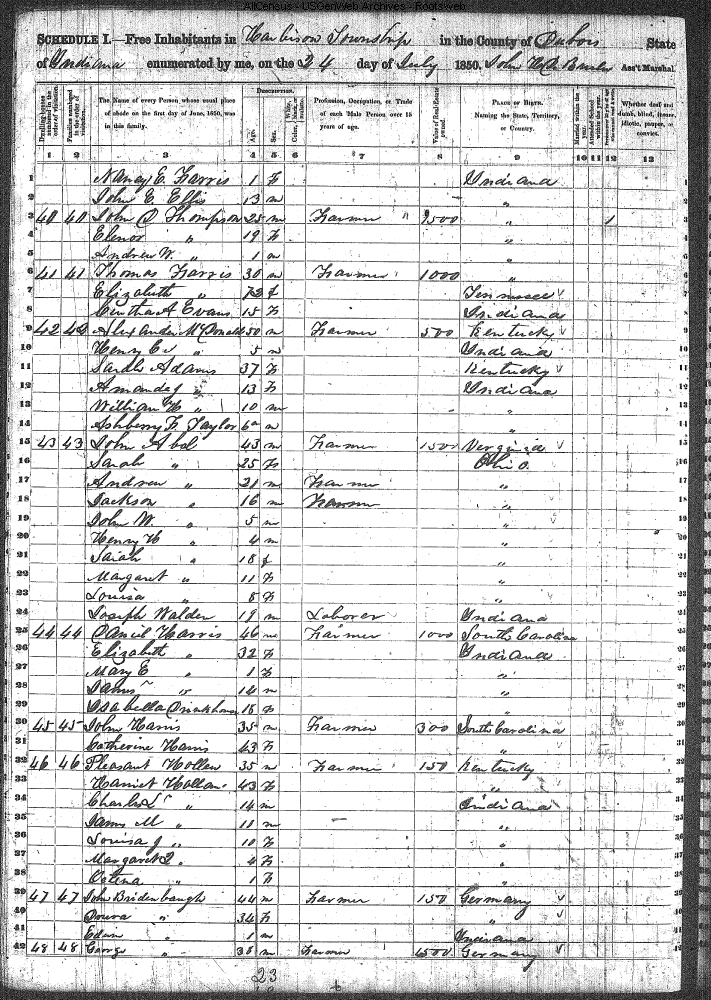 AllCensus - USGenWeb Archives - Rootsweb
SCHEDULE I.—Free Inhabitants in Harbison Township in the County of Dubois State
of Indiana enumerated by me, on the 24 day of July 1850. Ass't Marshal.
Dwelling-houses numbered in the order of visitation.
Families numbered in the order of visitation.
The Name of every Person whose usual place of abode on the first day of June, 1850, was in this family.
DESCRIPTION.
Age.
Sex.
White, black, or mulatto.
Color
Profession, Occupation, or Trade of each Male Person over 15 years of age.
Value of Real Estate owned.
PLACE OF BIRTH. Naming the State, Territory, or Country.
Married within the year.
Attended School within the year.
Whether deaf and dumb, blind, insane, idiotic, pauper, or convict.
1 2 3 4 5 6 7 8 9 10 11 12 13
1 Nancy E. Harris 1 F Indiana
2 John E. Ellis 13 m "
3 40 40 John Thompson 25 m Farmer " 1
4 Elenor " 19 F "
5 Andrew W. " 1 m "
6 41 41 Thomas Harris 30 m Farmer 1000 "
7 Elizabeth " f Tennessee
8 Evans 15 F Indiana
9 42 42 Alexander McDonald 50 m Farmer 500 Kentucky
10 Henry " 5 m Indiana
11 Sarah Adams 37 F Kentucky
12 Amanda J " 13 F Indiana
13 William H " 10 m "
14 Ashberry F. Taylor m "
15 43 43 John Abel 43 m Farmer 1500 Verginia
16 Sarah " 25 F Ohio
17 Andrew " 21 m Farmer "
18 Jackson " 16 m Farmer "
19 John W. " 5 m "
20 Henry H " 4 m "
21 Sarah " 18 f "
22 Margaret " 11 F "
23 Louisa " 8 F "
24 Joseph Walden 19 m Laborer Indiana
25 44 44 Daniel Harris 46 m Farmer 1000 South Carolina
26 Elizabeth " 32 F Indiana
27 Mary E " 1 F "
28 James " 14 m "
29 Isabella 18 F "
30 45 45 John Harris 35 m Farmer 300 South Carolina
31 Catherine Harris 43 F "
32 46 46 Pleasant Hollen 35 m Farmer 150 Kentucky
33 Harriet 43 F "
34 Charles " 14 m Indiana
35 James M " 11 m "
36 Louisa J " 10 F "
37 Margaret " 4 F "
38 " 1 F "
39 47 47 John Bridenbaugh 44 m Farmer 150 Germany
40 " 34 F "
41 " 1 m Indiana
42 48 48 George " m Farmer Germany
23